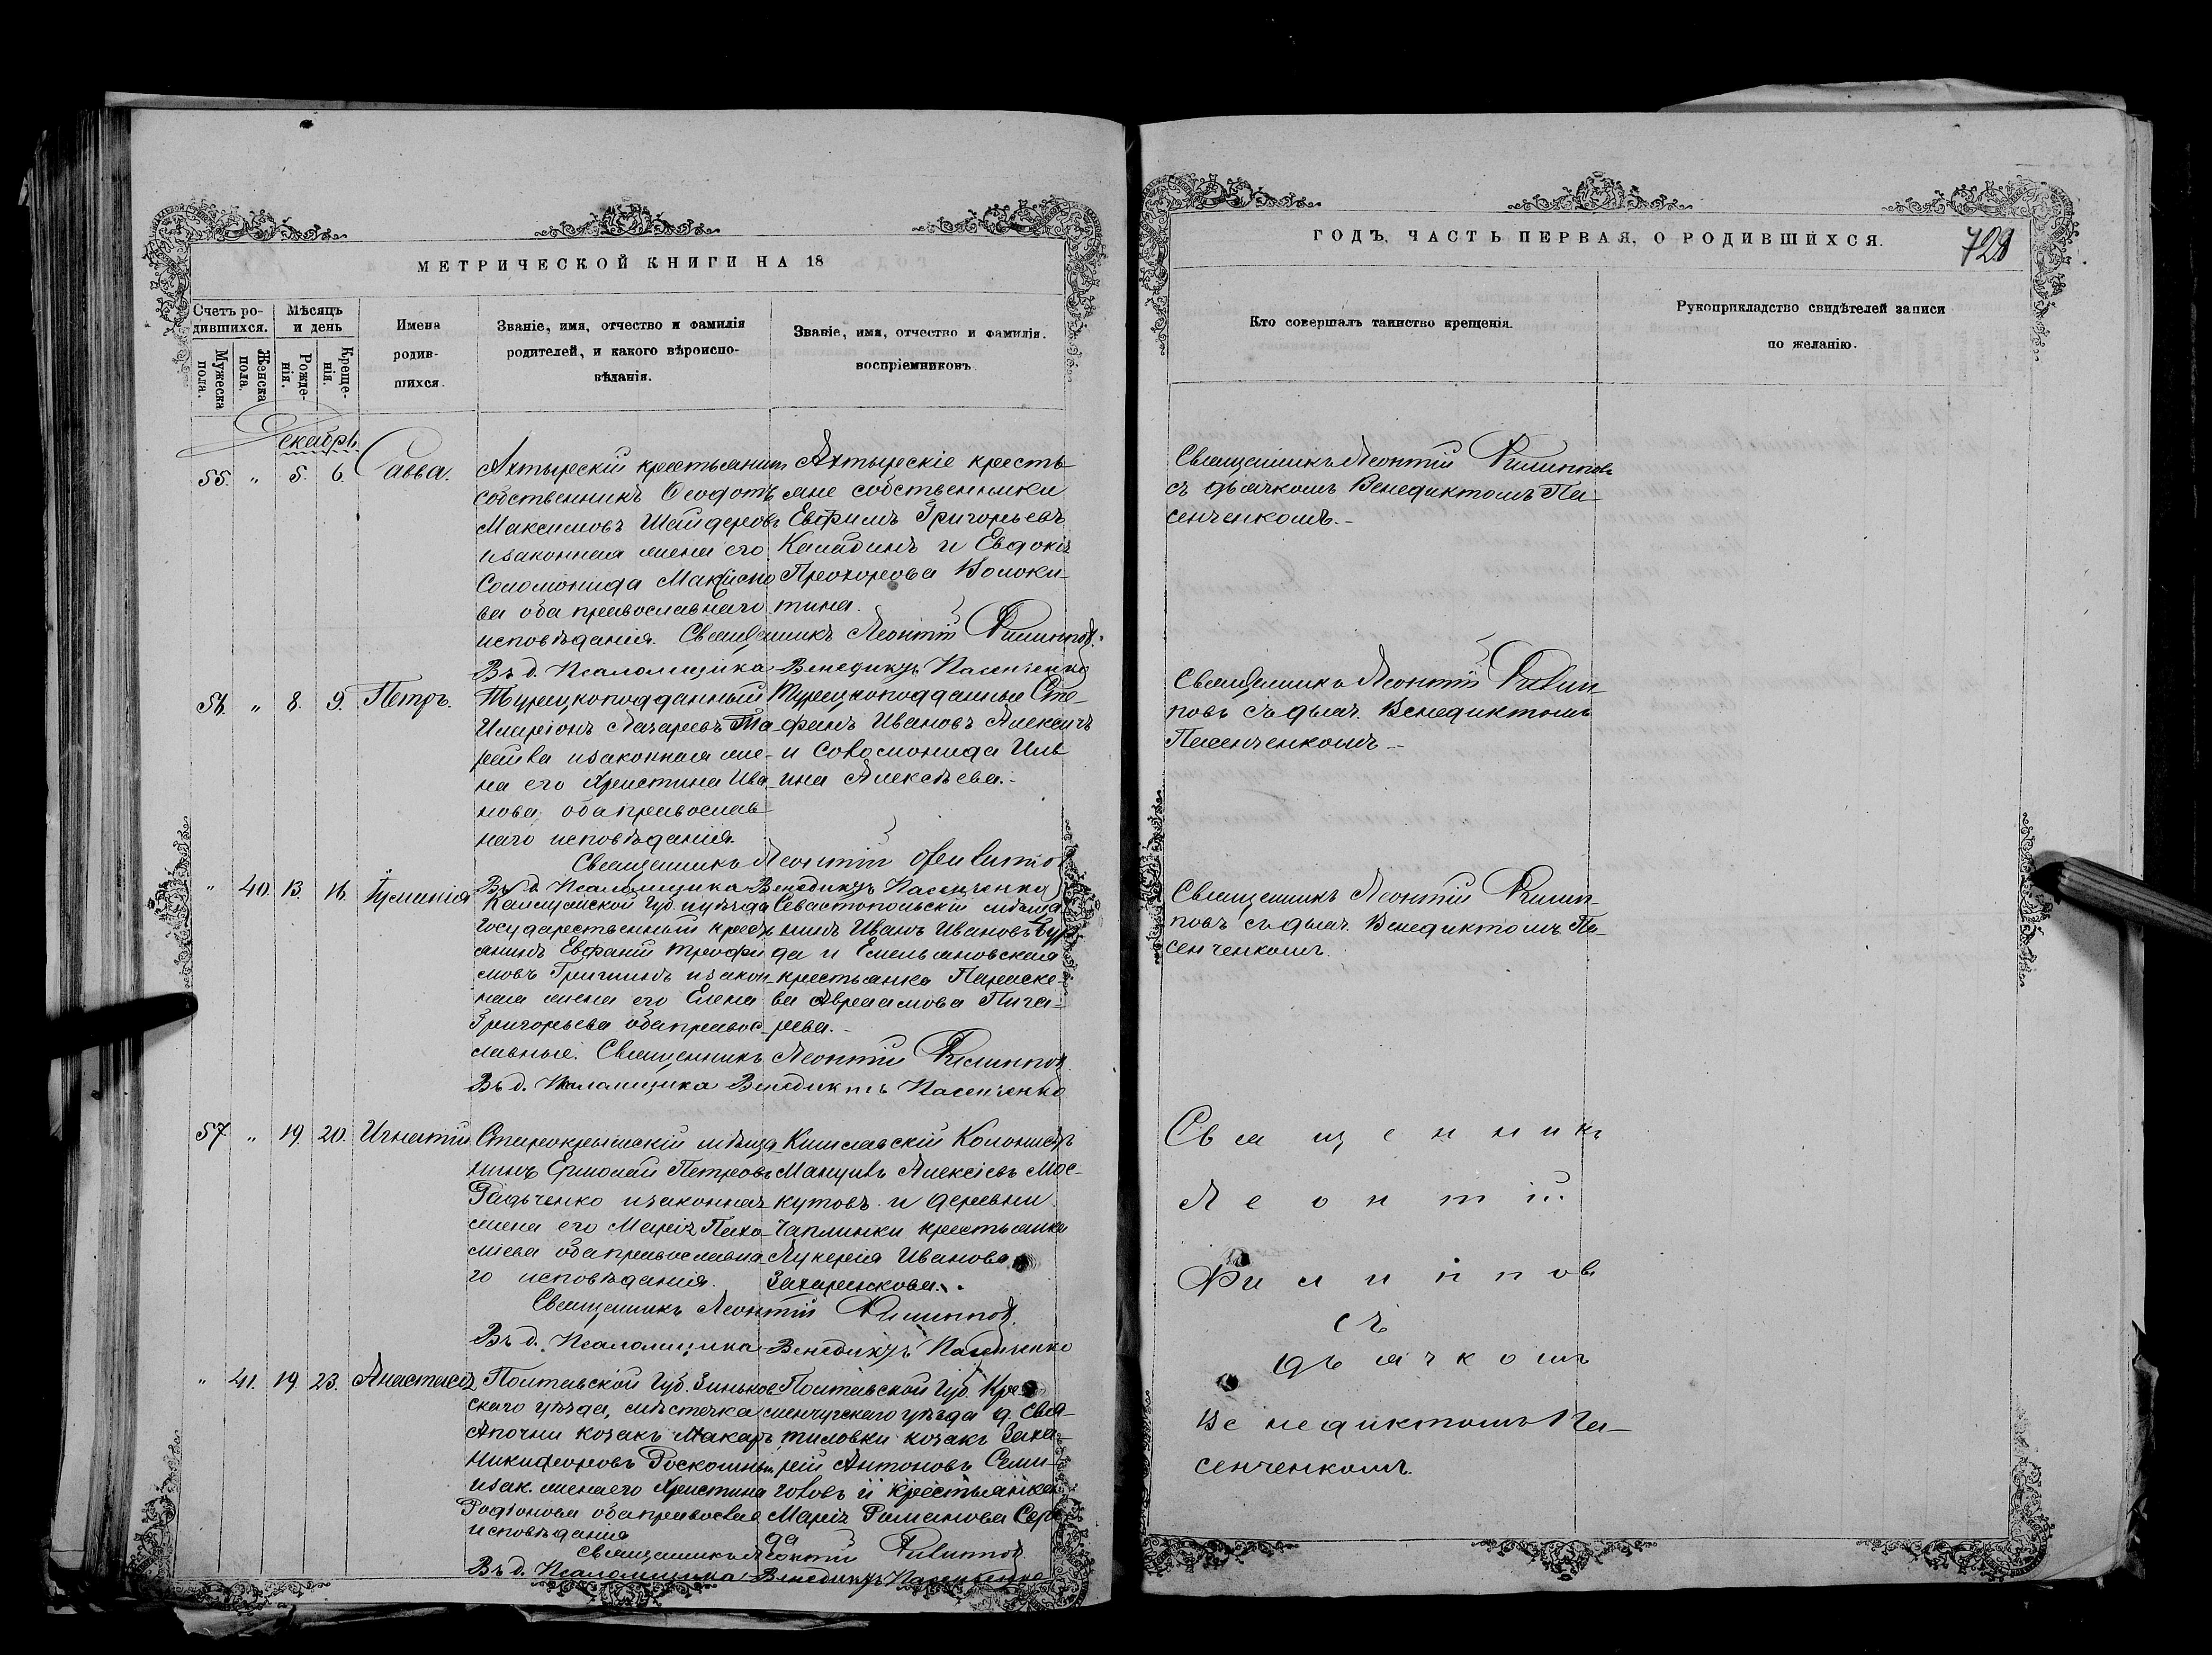 МЕТРИЧЕСКОЙ КНИГИ НА 18
Счетъ ро-
дившихся.
Мѣсяцъ
и день
Мужеска
пола.
Женска
пола.
Рожде-
нія.
Креще-
нія.
Имена
родив-
шихся.
Званіе, имя, отчество и фамилія
родителей, и какого вѣроиспо-
вѣданія.
Званіе, имя, отчество и фамилія.
воспріемниковъ
Декабрь
55. " 5. 6. Савва.
Ахтырскій крестьянинъ
собственникъ Ѳеодотъ
Максимовъ Шайдеровъ
и законная жена его
Соломонида Максимо
ва оба православнаго
исповѣданія. Священникъ Леонтій Филипповъ.
Въ д. Псаломщика Венедиктъ Пасенченко
Ахтырскіе кресть
яне собственники
Евфимъ Григорьевъ
и Евдокія
Прохорова Волоки-
тина.
56. " 8. 9. Петръ.
Турецкоподданный
Иларіонъ Лазаревъ
и законная же-
на его Христина Ива
нова, оба православ
наго исповѣданія.
Священникъ Леонтій Филиповъ
Въ д. Псаломщика Венедиктъ Пасенченко
Турецкоподданные Сте-
фанъ Ивановъ
и Соломонида Иль
ина Алексѣева.-
" 40. 13. 16.
Губ. и уѣзда
государственный крест
янинъ Трофи
мовъ и закон
ная жена его Елена
Григорьева оба правос
лавные. Священникъ Леонтій Филипповъ
Въ д. Псаломщика Венедиктъ Пасенченко
Севастопольскій мѣща
нинъ Иванъ Ивановъ
да и Емельяновская
крестьянка Параске-
ва Авраамова
57 " 19. 20. Игнатій
Старокрымскій мѣща
нинъ Ермолай Петровъ
Радченко и законная
жена его Марія Пахо-
міева оба православна
го исповѣданія.
Священникъ Леонтій Филипповъ.
Въ д. Псаломщика Венедиктъ Пасенченко
Кишлавскій Колонистъ
Алексіевъ Мос-
кутовъ. и деревни
Чаплинки крестьянка
Лукерія Иванова
Захаренкова.
" 41. 19. 23. Анастасія
Полтавской Губ. Зиньков
скаго уѣзда, мѣстечка
козакъ Макаръ
Никифоровъ
и зак. жена его Христина
Родіонова оба православ
исповѣданія
Священникъ Леонтій Филиповъ
Въ д. Псаломщика Венедиктъ Пасенченко
Полтавской Губ. Кре-
менчугскаго уѣзда д.
козакъ Заха-
рій Антоновъ Семи-
и крестьянка
Марія Романова
да
ГОДЪ, ЧАСТЬ ПЕРВАЯ, О РОДИВШИХСЯ.
Кто совершалъ таинство крещенія.
Рукоприкладство свидѣтелей записи
по желанію.
Священникъ Леонтій Филипповъ
съ дьячкомъ Венедиктомъ Па-
сенченкомъ.-
Священникъ Леонтій Филип-
повъ съ дьяч. Венедиктомъ
Пасенченкомъ.-
Священникъ Леонтій Филип-
повъ съ дьяч. Венедиктомъ Па-
сенченкомъ.
Священникъ
Леонтій
Филипповъ
съ
дьячкомъ
Венедиктомъ Па-
сенченкомъ.